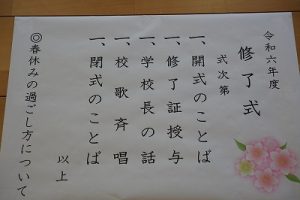 令和六年度
修了式
式次第
一、開式のことば
一、修了証授与
一、学校長の話
一、校歌斉唱
一、閉式のことば
以上
◎春休みの過ごし方について